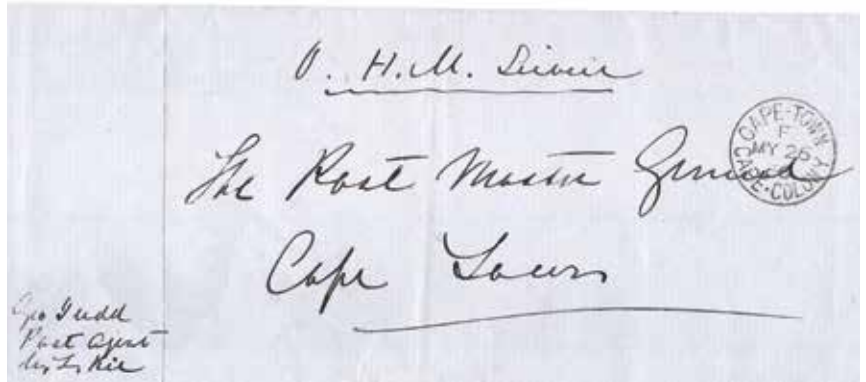 O. H.M. Service
The Post Master General
Cape Town
CAPE-TOWN
F
MY 26
CAPE·COLONY
Geo Judd
Post Agent